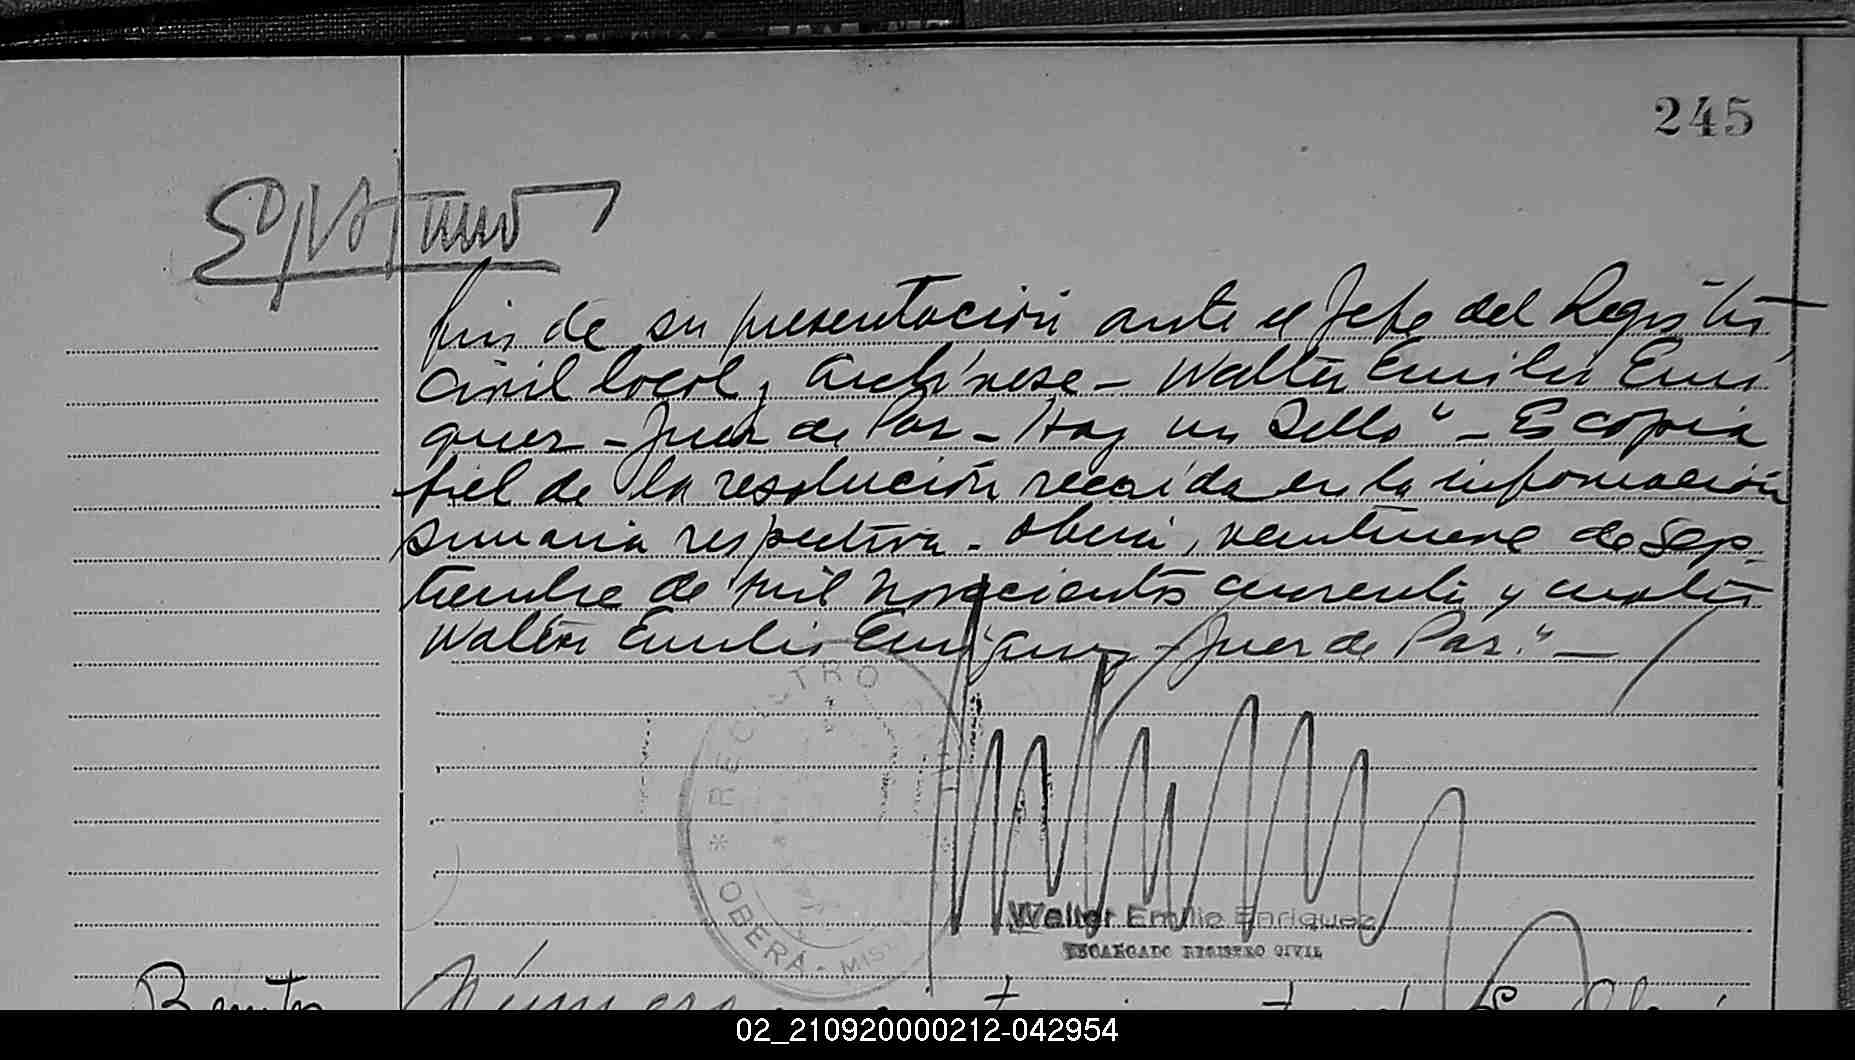 245
fin de su presentación ante el Jefe del Registro
Civil local, archívese - Walter Emilio Enri
quez - Juez de Paz - Hay un Sello" - Es copia
fiel de la resolución recaída en la información
sumaria respectiva - Oberá, veintinueve de Sep
tiembre de mil novecientos cuarenta y cuatro
Walter Emilio Enriquez - Juez de Paz." -
REGISTRO
OBERÁ - MIS
Walter Emilio Enriquez
ENCARGADO REGISTRO CIVIL
Benito
Número
02_210920000212-042954